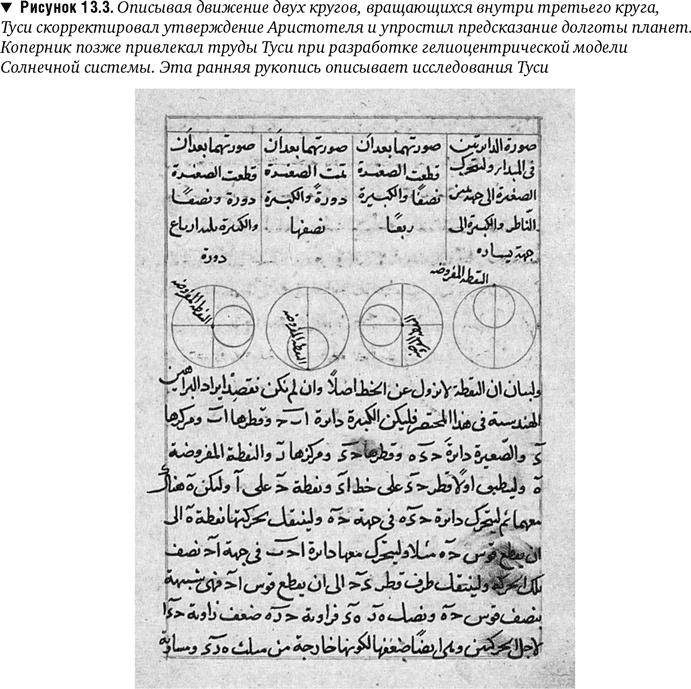 ▼ Рисунок 13.3. Описывая движение двух кругов, вращающихся внутри третьего круга,
Туси скорректировал утверждение Аристотеля и упростил предсказание долготы планет.
Коперник позже привлекал труды Туси при разработке гелиоцентрической модели
Солнечной системы. Эта ранняя рукопись описывает исследования Туси
صورة الدائرتين
فى المبدا ولتتحرك
الصغيرة الى جهة يمين
الناظر والكبيرة الى
جهة يساره
صورتهما بعد ان
قطعت الصغيرة
نصفا والكبيرة
ربعا
صورتهما بعد ان
تمت الصغيرة
دورة والكبيرة
نصفها
صورتهما بعد ان
قطعت الصغيرة
دورة ونصفا
والكبيرة ثلثة ارباع
دورة
النقطة المفروضة
النقطة المفروضة
النقطة المفروضة
ولبيان ان النقطة لا تزول عن الخط اصلا وان لم نكن نقصد ايراد البراهين
الهندسية فى هذا المختصر فليكن الكبيرة دائرة اب وقطرها اب ومركزها
د والصغيرة دائرة وقطرها ومركزها والنقطة المفروضة
ه وليطبق اولا قطر على خط ونقطة على ا وليكن ه هناك
معهما ثم لتتحرك دائرة فى جهة ولينتقل بحركتها نقطة ه الى
ان يقطع قوس مثلا ولتتحرك معها دائرة فى جهة نصف
تلك الحركة ولينتقل طرف قطر الى ان يقطع قوس فهى شبيهة
بنصف قوس ونصل فزاوية ضعف زاوية
لاجل الحركتين وايضا ضعفها لكونها خارجة من مثلث ومساوية